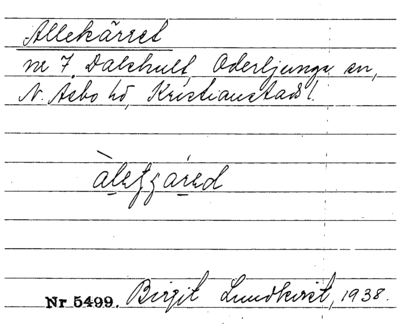 Allekärret
nr 7 Dalshult, Oderljunga sn,
N. Åsbo hd, Kristianstads l.
Nr 5499. Birgit Lundkvist, 1938.